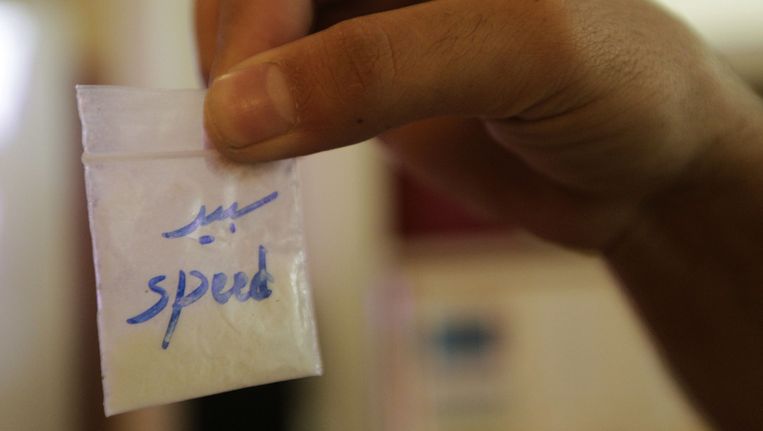 سبيد
speed